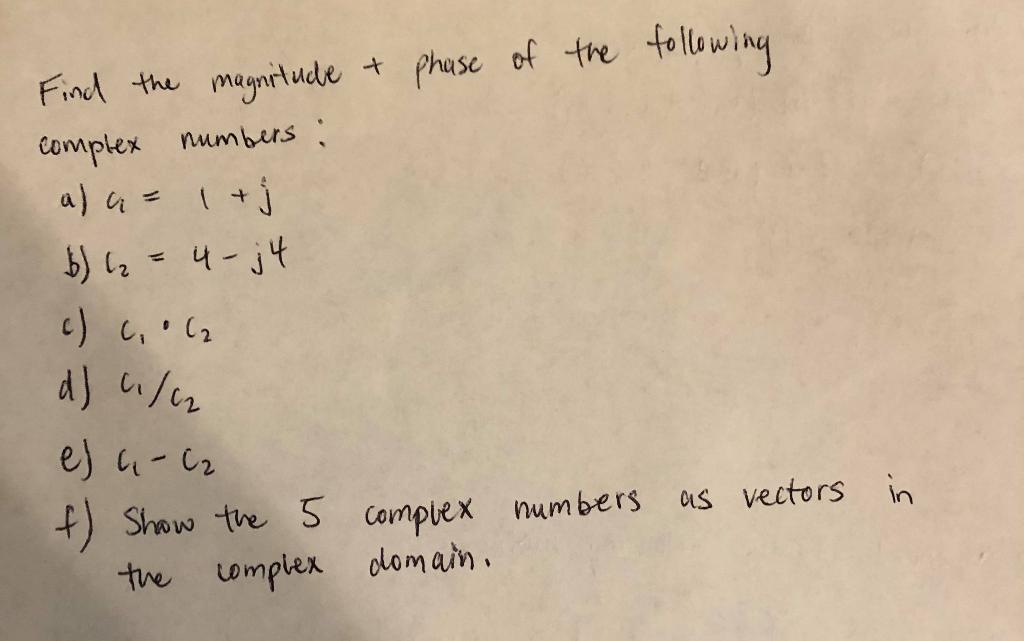 Find the magnitude + phase of the following
complex numbers :
a) c₁ = 1 + j
b) c₂ = 4 - j4
c) c₁ • c₂
d) c₁/c₂
e) c₁ - c₂
f) Show the 5 complex numbers as vectors in
the complex domain.